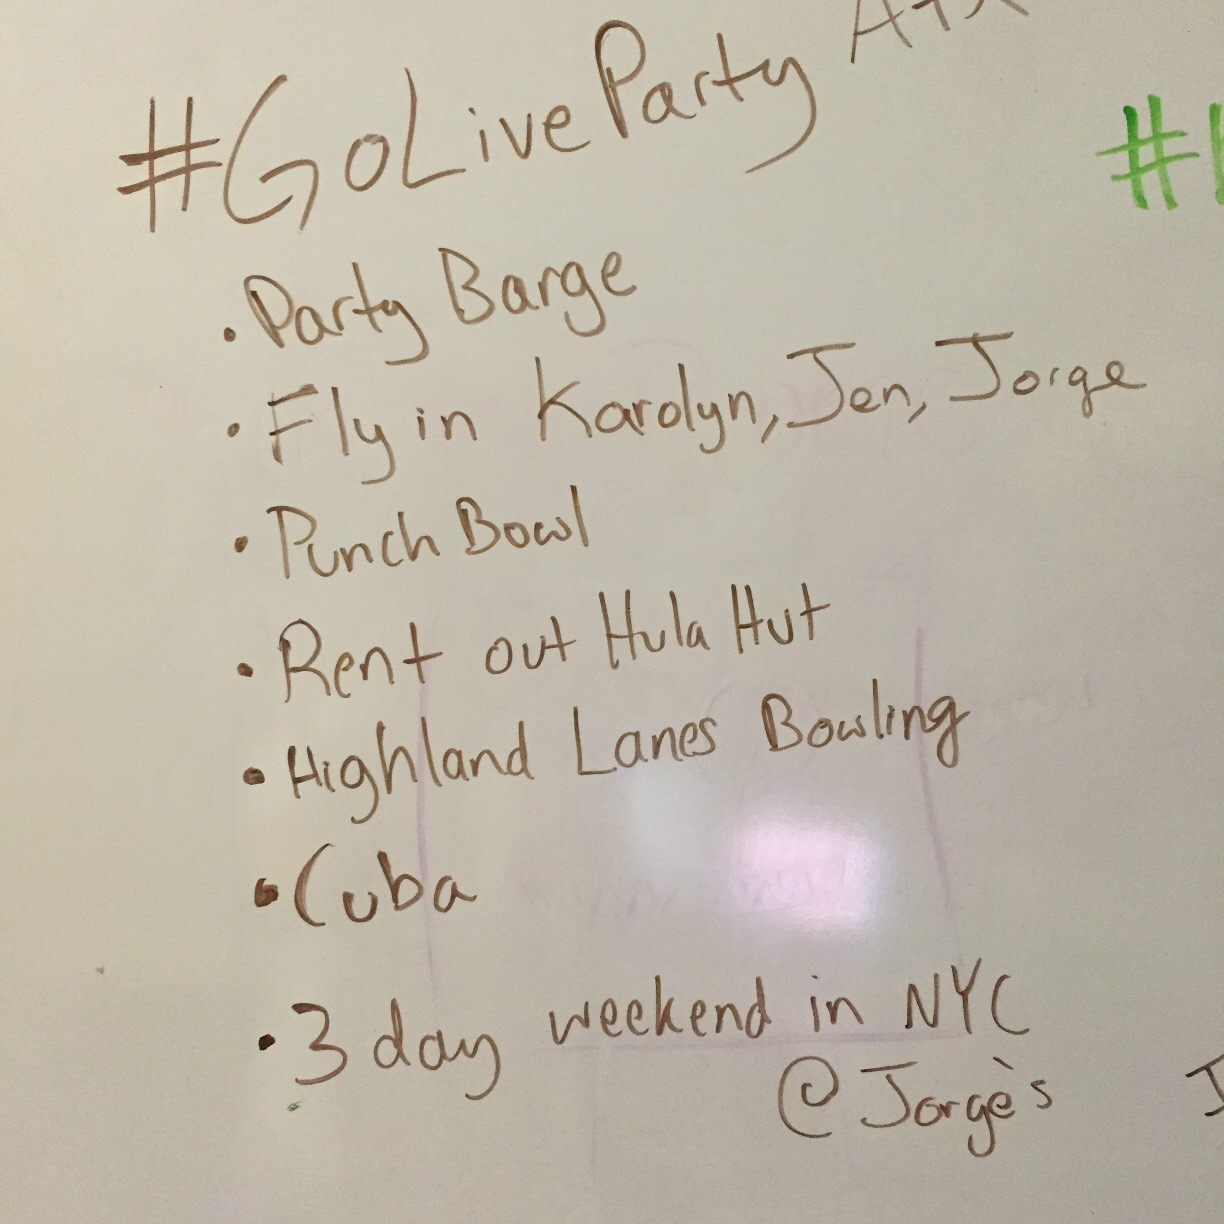 #GoLiveParty ATX
#
• Party Barge
• Fly in Karolyn, Jen, Jorge
• Punch Bowl
• Rent out Hula Hut
• Highland Lanes Bowling
• Cuba
• 3 day weekend in NYC
@ Jorge's